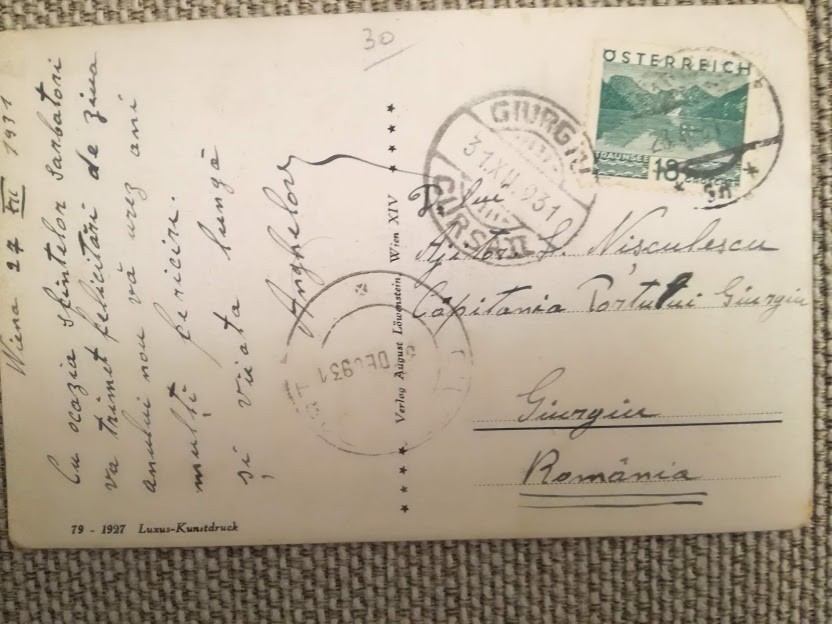 30
Wiena 27 XII 1931
Cu ocazia sfintelor sarbatori
va trimet felicitări de ziua
anului nou vă urez ani
mulți fericiri.
și viiata lungă
Anghelov
79 - 1927 Luxus-Kunstdruck
Verlag August Löwenstein, Wien XIV
ÖSTERREICH
TRAUNSEE
18
GIURGIU
31 XII 931
DEC 931
D. lui
Nisculescu
Căpitania Portului Giurgiu
Giurgiu
România